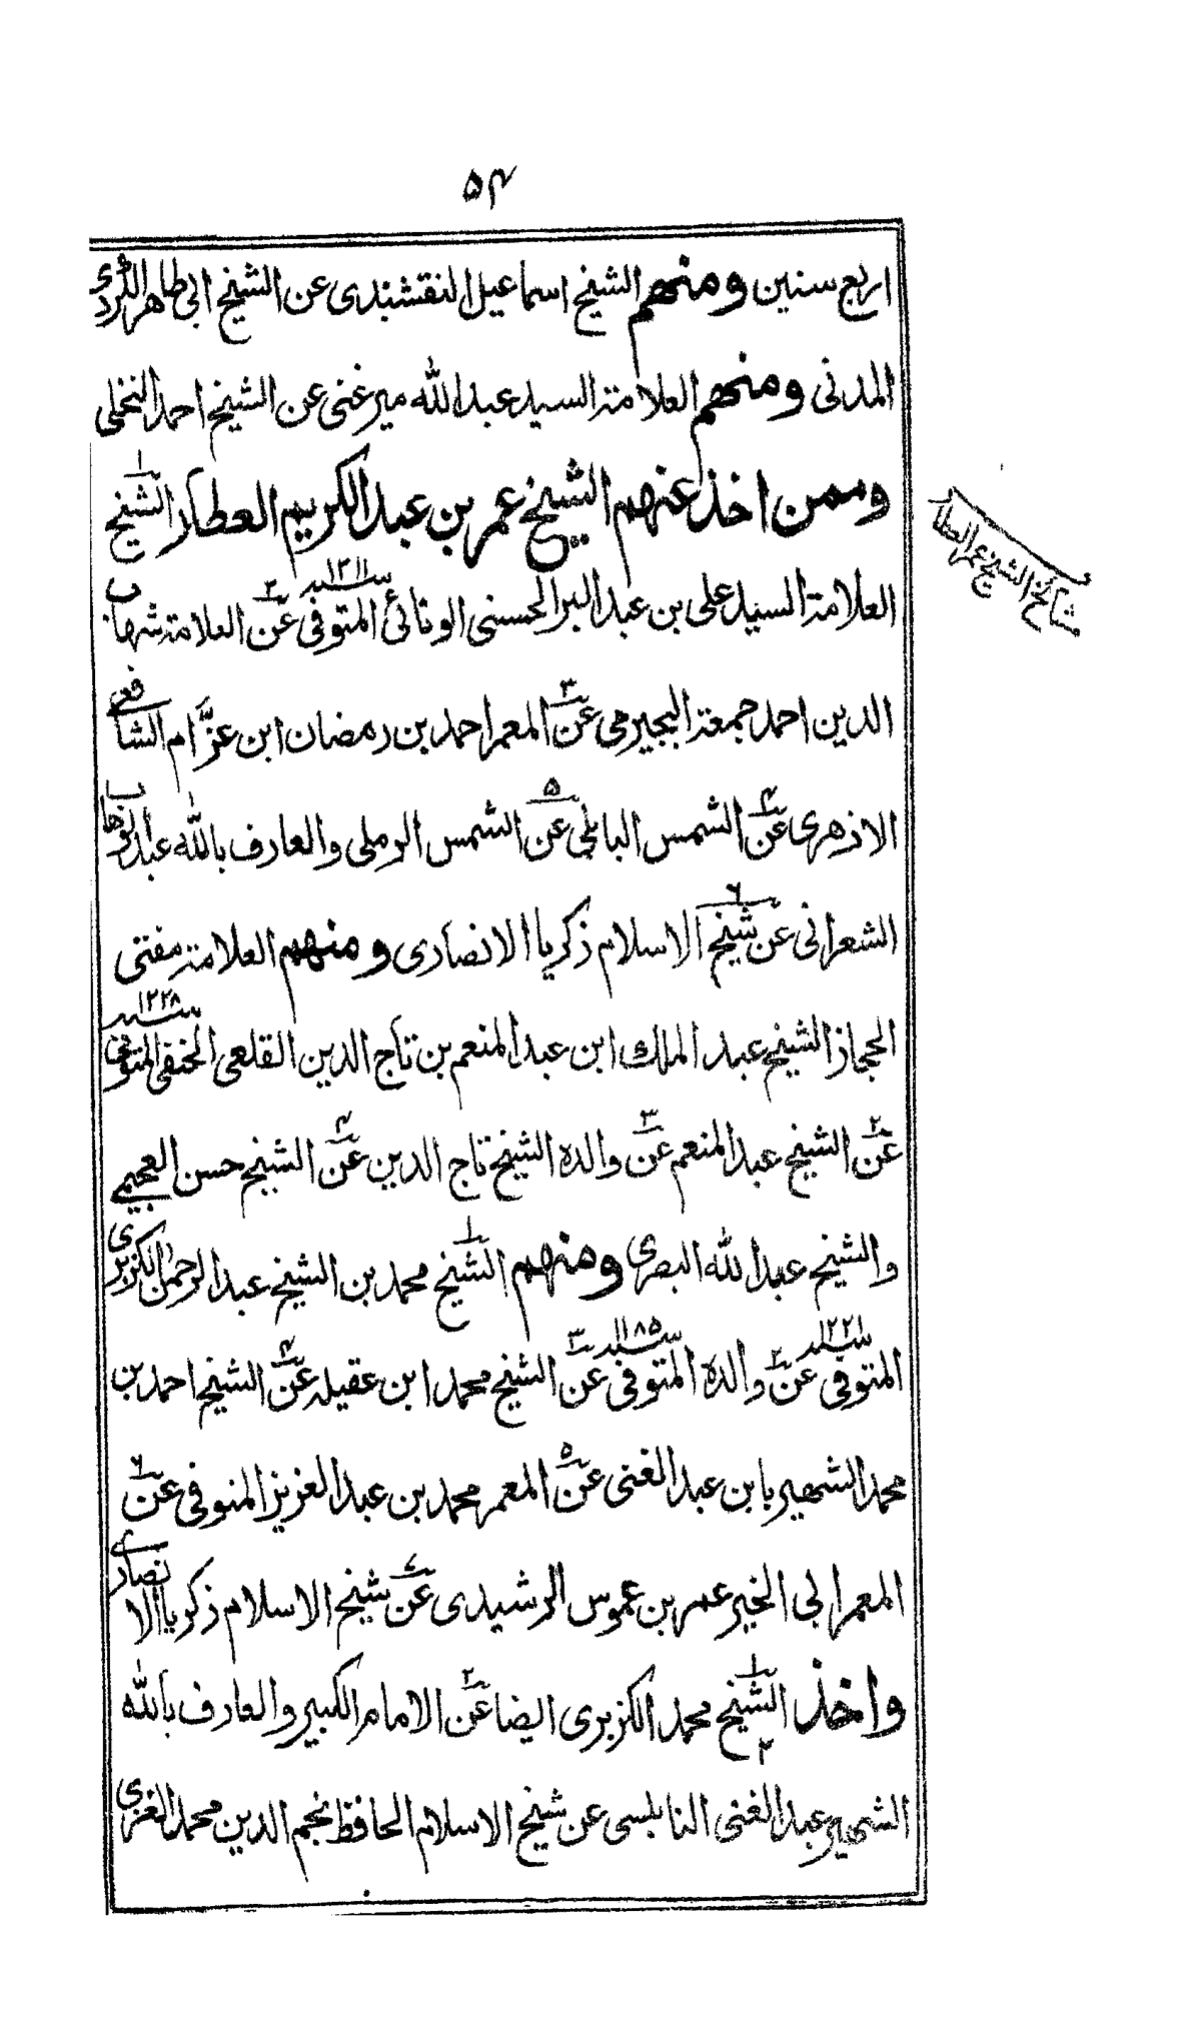 ۵۴
اربع سنين ومنهم الشيخ اسماعيل النقشبندى عن الشيخ ابى طاهر الكردى
المدنى ومنهم العلامة السيد عبد الله ميرغنى عن الشيخ احمد النخلى
وممن اخذ عنهم الشيخ عمر بن عبد الكريم العطار الشيخ ١
مشائخ الشيخ عمر العطار
العلامة السيد على بن عبد البر الحسنى الونائى المتوفى سنة ١٢١١ عن ٢ العلامة شهاب
الدين احمد جمعة البجيرمى عن ٣ المعمر احمد بن رمضان ابن عزّام الشافعى
الازهرى عن ۴ الشمس البابلى عن ۵ الشمس الرملى والعارف بالله عبد الوهاب
الشعرانى عن شيخ ٦ الاسلام زكريا الانصارى ومنهم العلامة مفتى
الحجاز الشيخ عبد الملك ابن عبد المنعم بن تاج الدين القلعى الحنفى المتوفى سنة ١٢٢٨
عن ٢ الشيخ عبد المنعم عن ٣ والده الشيخ تاج الدين عن ۴ الشيخ حسن العجيمى
والشيخ عبد الله البصرى ومنهم الشيخ ١ محمد بن الشيخ عبد الرحمن الكزبرى
المتوفى سنة ١٢٢١ عن ٢ والده المتوفى سنة ١١٨۵ عن ٣ الشيخ محمد ابن عقيله عن ۴ الشيخ احمد بن
محمد الشهير بابن عبد الغنى عن ۵ المعمر محمد بن عبد العزيز المنوفى عن ٦
المعمر ابى الخير عمر بن عموس الرشيدى عن ٧ شيخ الاسلام زكريا الانصارى
واخذ الشيخ ١ محمد الكزبرى ايضا عن ٢ الامام الكبير والعارف بالله
الشهير عبد الغنى ٢ النابلسى عن شيخ الاسلام الحافظ نجم الدين محمد الغزى